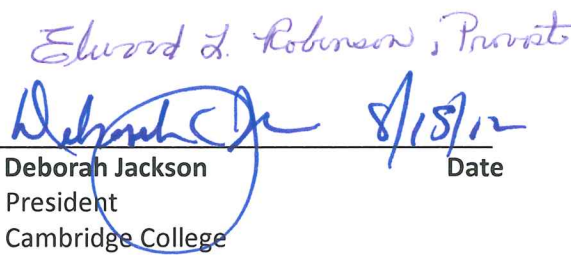 Elwood L. Robinson, Provost
Deborah C J 8/15/12
Deborah Jackson Date
President
Cambridge College